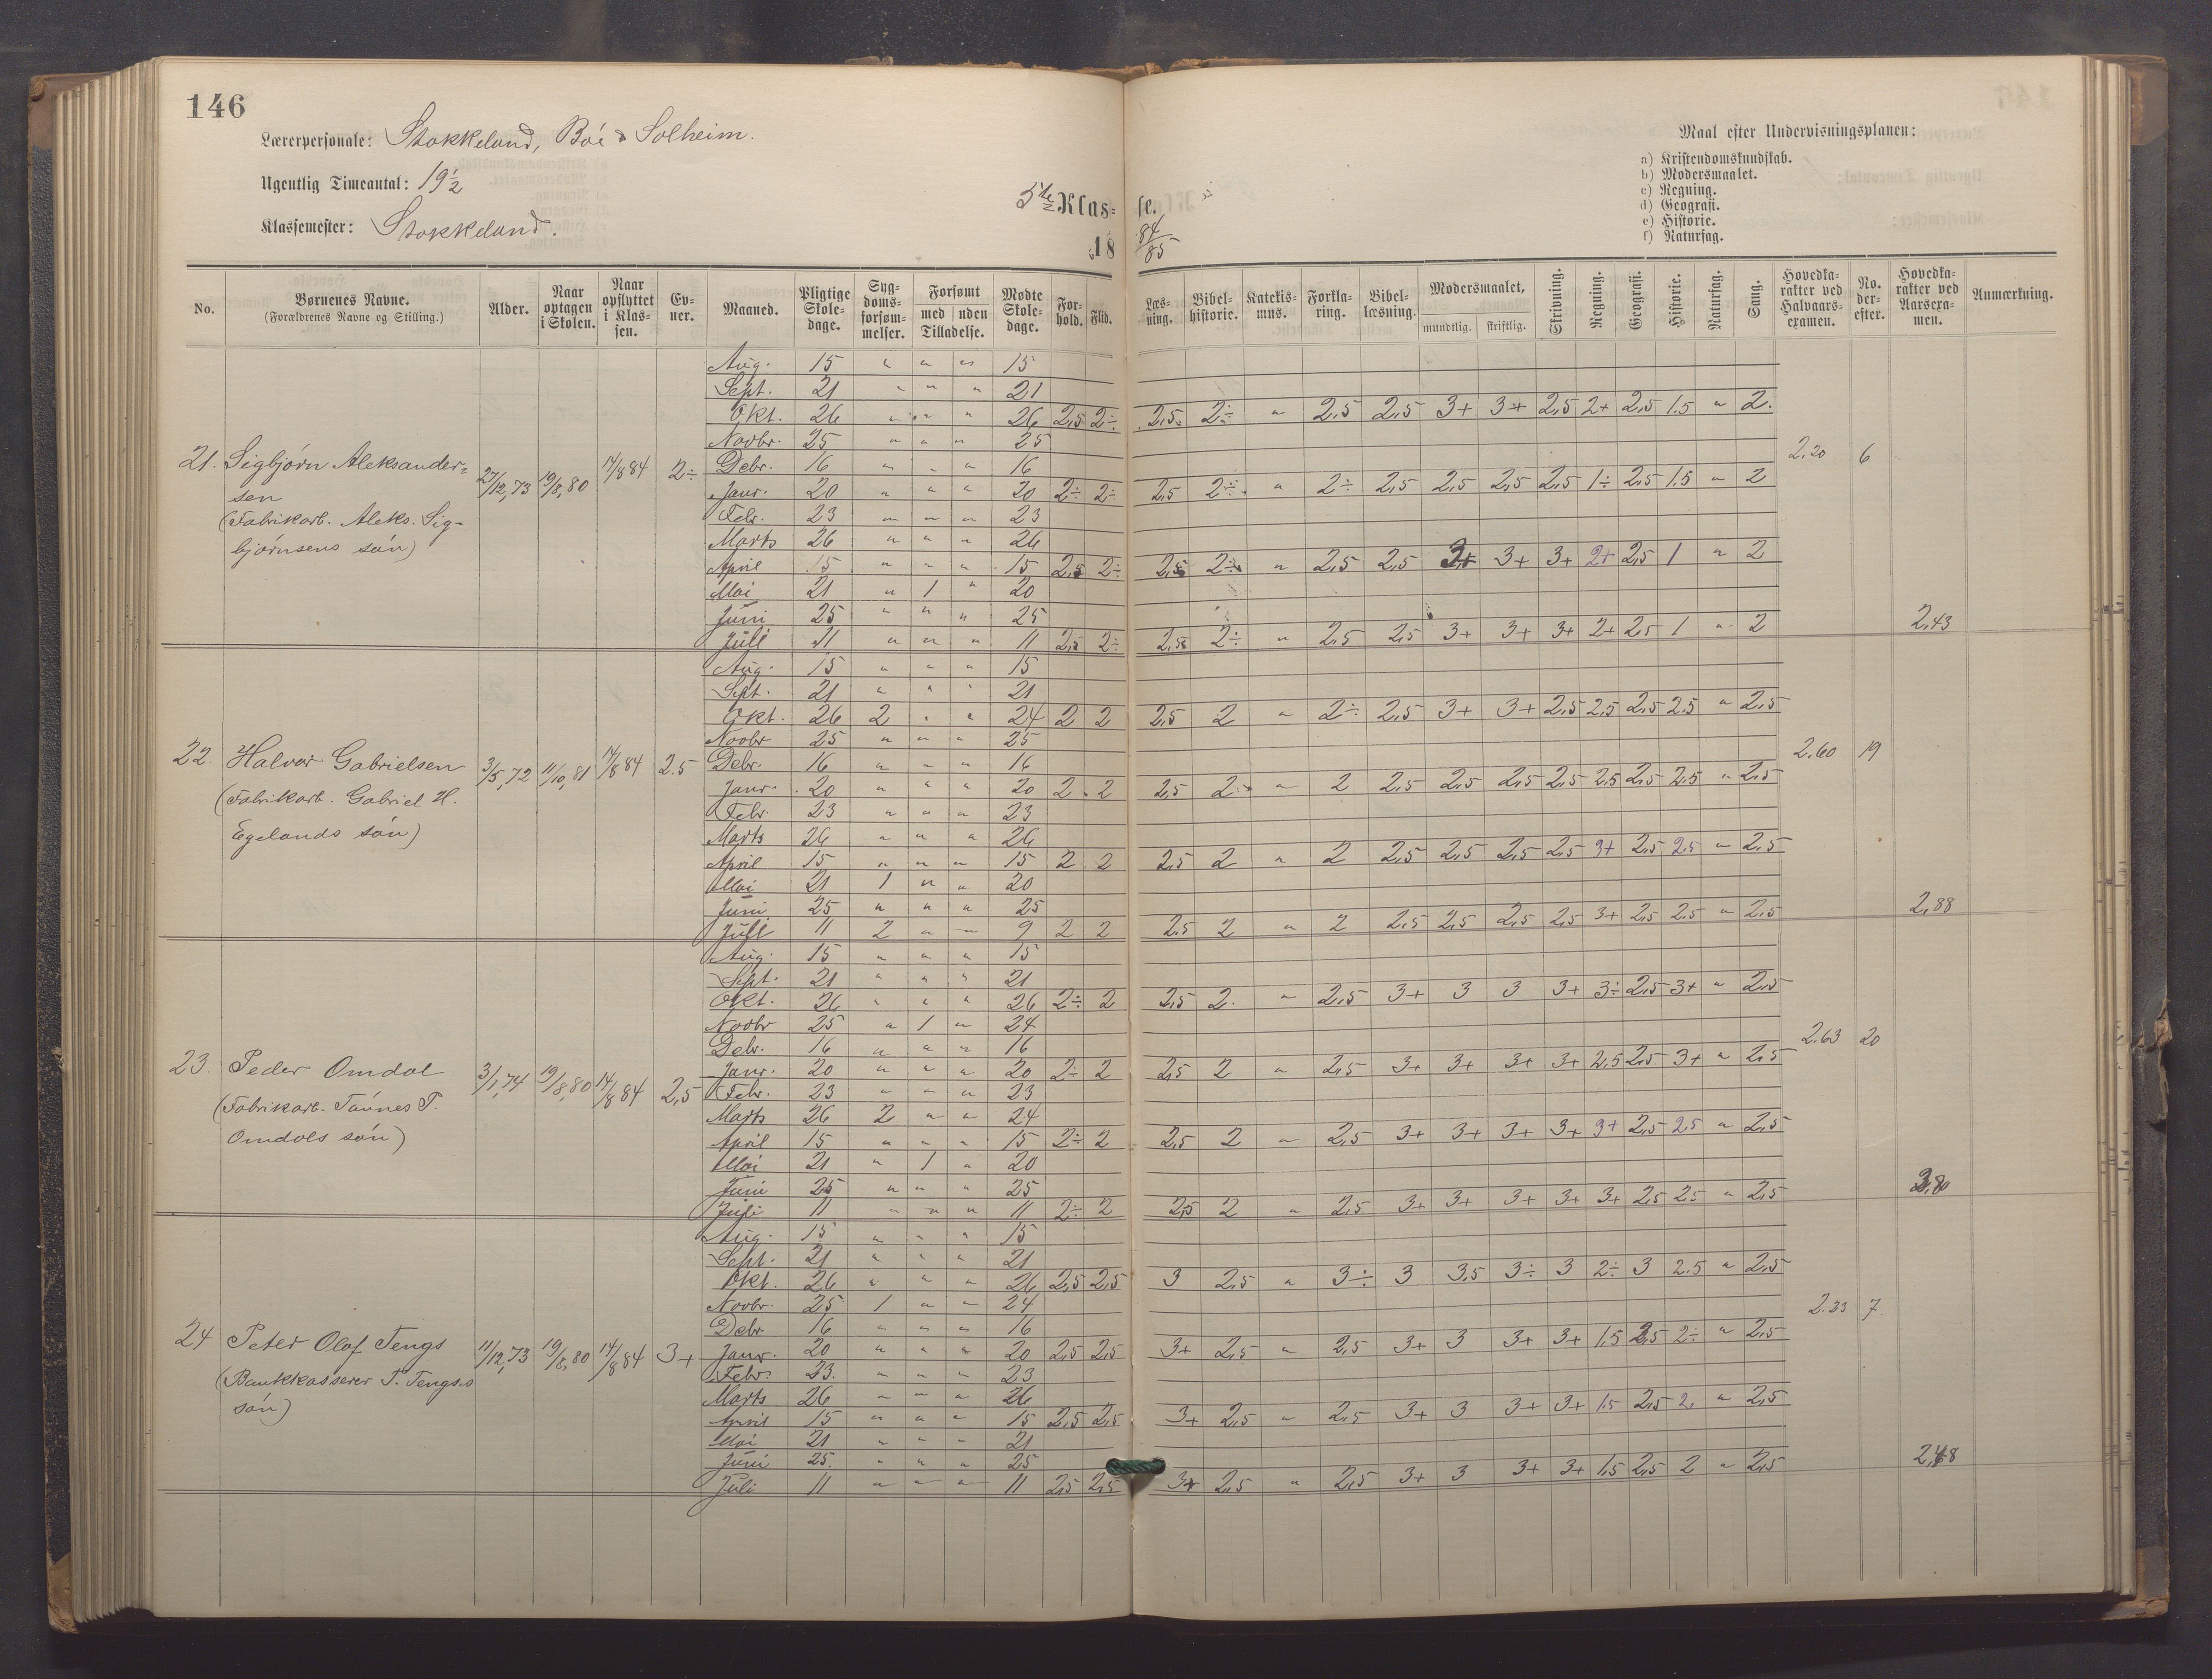 146
Lærerpersonale: Stokkeland, Boé & Solheim.
Ugentlig Timeantal: 19 1/2
Klassemester: Stokkeland.
5te Klas= se.
18 84/85
Maal efter Undervisningsplanen:
a) Kristendomskundskab.
b) Modersmaalet.
c) Regning.
d) Geografi.
e) Historie.
f) Naturfag.
No. | Børnenes Navne. (Forældrenes Navne og Stilling.) | Alder. | Naar optagen i Skolen. | Naar opflyttet i Klassen. | Evner. | Maaned. | Pligtige Skoledage. | Sygdomsforsømmelser. | Forsømt med / uden Tilladelse. | Mødte Skoledage. | Forhold. | Flid. | Læsning. | Bibelhistorie. | Katekismus. | Forklaring. | Bibellæsning. | Modersmaalet, mundtlig. skriftlig. | Skrivning. | Regning. | Geografi. | Historie. | Naturfag. | Sang. | Hovedkarakter ved Halvaarsexamen. | No. derefter. | Hovedkarakter ved Aarsexamen. | Anmærkning.
21. Sigbjørn Aleksander=
sen
(Fabrikarb. Aleks. Sig-
bjørnsens søn)
27/12,73 19/8,80 14/8 84 2÷
Aug. 15 " " " 15
Sept. 21 " " " 21
Okt. 26 " " " 26 2,5 2÷ 2,5 2÷ " 2,5 2,5 3+ 3+ 2,5 2+ 2,5 1.5 " 2.
Novbr. 25 " " " 25
Debr. 16 " " " 16 2.20 6
Janr. 20 " " " 20 2÷ 2÷ 2,5 2÷ " 2÷ 2,5 2,5 2,5 2,5 1÷ 2,5 1.5 " 2
Febr. 23 " " " 23
Marts 26 " " " 26
April 15 " " " 15 2,5 2÷ 2,5 2÷ " 2,5 2,5 3+ 3+ 3+ 2+ 2,5 1 " 2
Mai 21 " 1 " 20
Juni 25 " " " 25
Juli 11 " " " 11 2,5 2÷ 2,5 2÷ " 2,5 2,5 3+ 3+ 3+ 2+ 2,5 1 " 2 2,43
22. Halvor Gabrielsen
(Fabrikarb. Gabriel H.
Egelands søn)
3/5,72 11/10,81 14/8 84 2.5
Aug. 15 " " " 15
Sept. 21 " " " 21
Okt. 26 2 " " 24 2 2 2,5 2 " 2÷ 2,5 3+ 3+ 2,5 2,5 2,5 2.5 " 2,5
Novbr 25 " " " 25
Debr. 16 " " " 16 2.60 19
Janr. 20 " " " 20 2 2 2,5 2 " 2 2,5 2,5 2,5 2,5 2,5 2,5 2,5 " 2,5
Febr. 23 " " " 23
Marts 26 " " " 26
April 15 " " " 15 2 2 2,5 2 " 2 2,5 2,5 2,5 2,5 3+ 2,5 2.5 " 2,5
Mai 21 1 " " 20
Juni 25 " " " 25
Juli 11 2 " " 9 2 2 2.5 2 " 2 2,5 2,5 2,5 2,5 3+ 2,5 2,5 " 2,5 2,88
23. Peder Omdal
(Fabrikarb. Tønnes P.
Omdals søn)
3/1,74 19/8,80 14/8 84 2,5
Aug. 15 " " " 15
Sept. 21 " " " 21
Okt. 26 " " " 26 2÷ 2 2,5 2. " 2,5 3+ 3 3 3+ 3÷ 2,5 3+ " 2,5
Novbr 25 " 1 " 24
Debr. 16 " " " 16 2.63 20
Janr. 20 " " " 20 2÷ 2 2,5 2 " 2,5 3+ 3+ 3+ 3+ 2,5 2,5 3+ " 2,5
Febr. 23 " " " 23
Marts 26 2 " " 24
April 15 " " " 15 2÷ 2 2,5 2 " 2,5 3+ 3+ 3+ 3+ 3+ 2,5 2.5 " 2,5
Mai 21 " 1 " 20
Juni 25 " " " 25
Juli 11 " " " 11 2÷ 2 2,5 2 " 2,5 3+ 3+ 3+ 3+ 3+ 2,5 2,5 " 2,5
24 Peter Olaf Tengs
(Bankkasserer T. Tengs.s
søn)
11/12,73 19/8,80 14/8 84 3+
Aug. 15 " " " 15
Sept. 21 " " " 21
Okt. 26 " " " 26 2,5 2,5 3 2,5 " 3÷ 3 3,5 3÷ 3 2÷ 3 2.5 " 2,5
Novbr. 25 1 " " 24
Debr 16 " " " 16 2.33 7
Janr. 20 " " " 20 2,5 2,5 3+ 2,5 " 2,5 3+ 3 3+ 3+ 1.5 2,5 2÷ " 2,5
Febr. 23. " " " 23
Marts 26 " " " 26
April 15 " " " 15 2,5 2,5 3+ 2,5 " 2,5 3+ 3 3+ 3+ 1.5 2,5 2. " 2,5
Mai 21 " " " 21
Juni 25. " " " 25
Juli 11 " " " 11 2,5 2,5 3+ 2,5 " 2,5 3+ 3 3+ 3+ 1,5 2,5 2 " 2,5 2,48